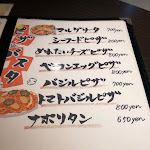 ピザ
パスタ
マルゲリータ 700yen
シーフードピザ 800yen
めんたいチーズピザ 800yen
ベーコンエッグピザ 800yen
バジルピザ 700yen
トマトバジルピザ 800yen
ナポリタン 650yen